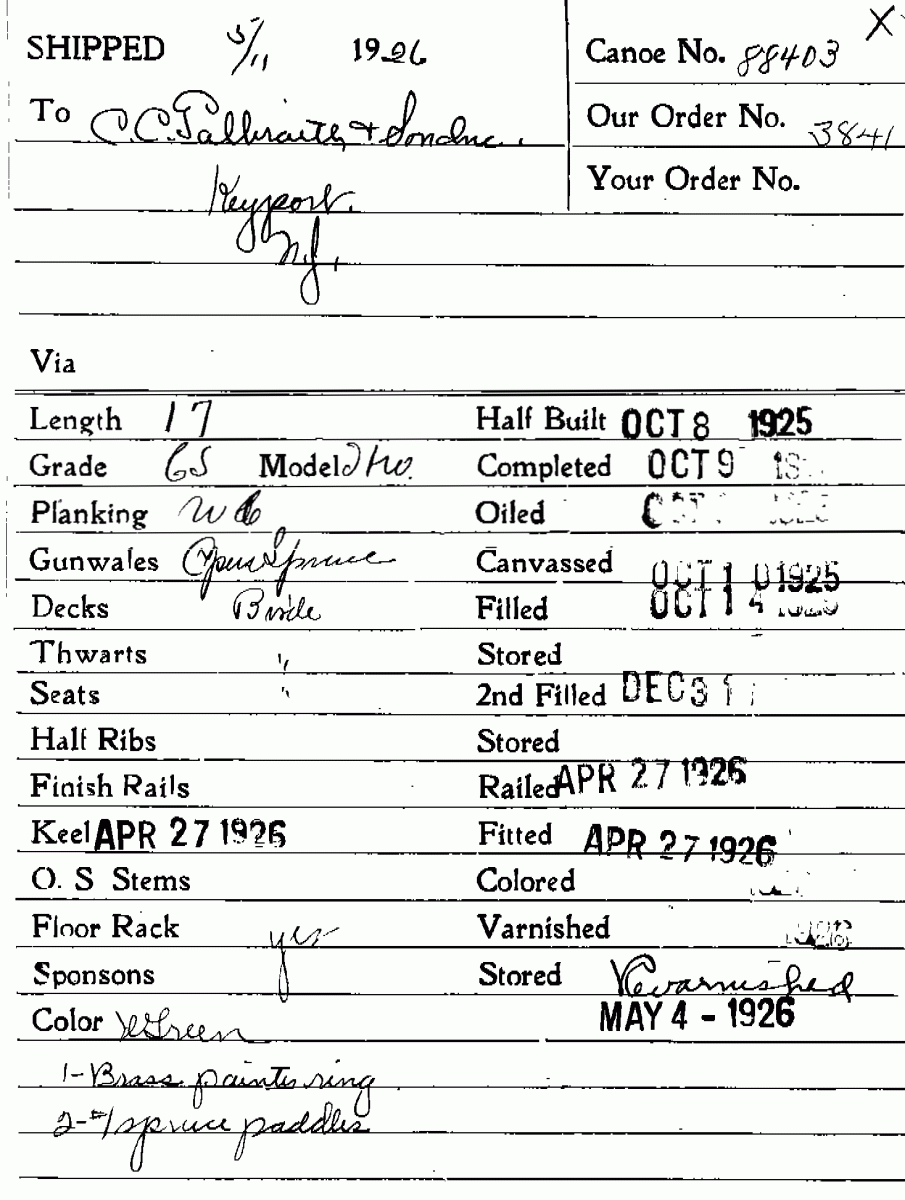 X
SHIPPED 5/11 1926
Canoe No. 88403
To C.C. Galbraith & Son Inc.
Our Order No. 3841
Keyport.
Your Order No.
N.J.
Via
Length 17
Half Built OCT 8 1925
Grade CS Model
Completed OCT 9
Planking W C
Oiled
Gunwales Open Spruce
Canvassed OCT 10 1925
Decks Birch
Filled OCT 14 1925
Thwarts "
Stored
Seats "
2nd Filled DEC 31
Half Ribs
Stored
Finish Rails
Railed APR 27 1926
Keel APR 27 1926
Fitted APR 27 1926
O. S Stems
Colored
Floor Rack yes
Varnished 1926
Sponsons
Stored Revarnished
Color Green
MAY 4 - 1926
1- Brass painter ring
2-#1 spruce paddles